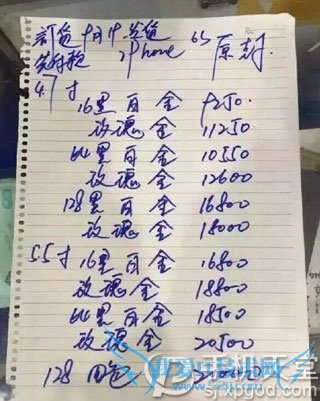 订货 9月19发货
全付款 iphone 6S 原封
4.7寸
16黑白金 9250.
玫瑰金 11250
64黑白金 10550
玫瑰金 12600
128黑白金 16800
玫瑰金 18000
5.5寸 16黑白金 16800
玫瑰金 18800
64黑白金 18500
玫瑰金 20500
128 四色
手机天堂
sj.xpgod.com